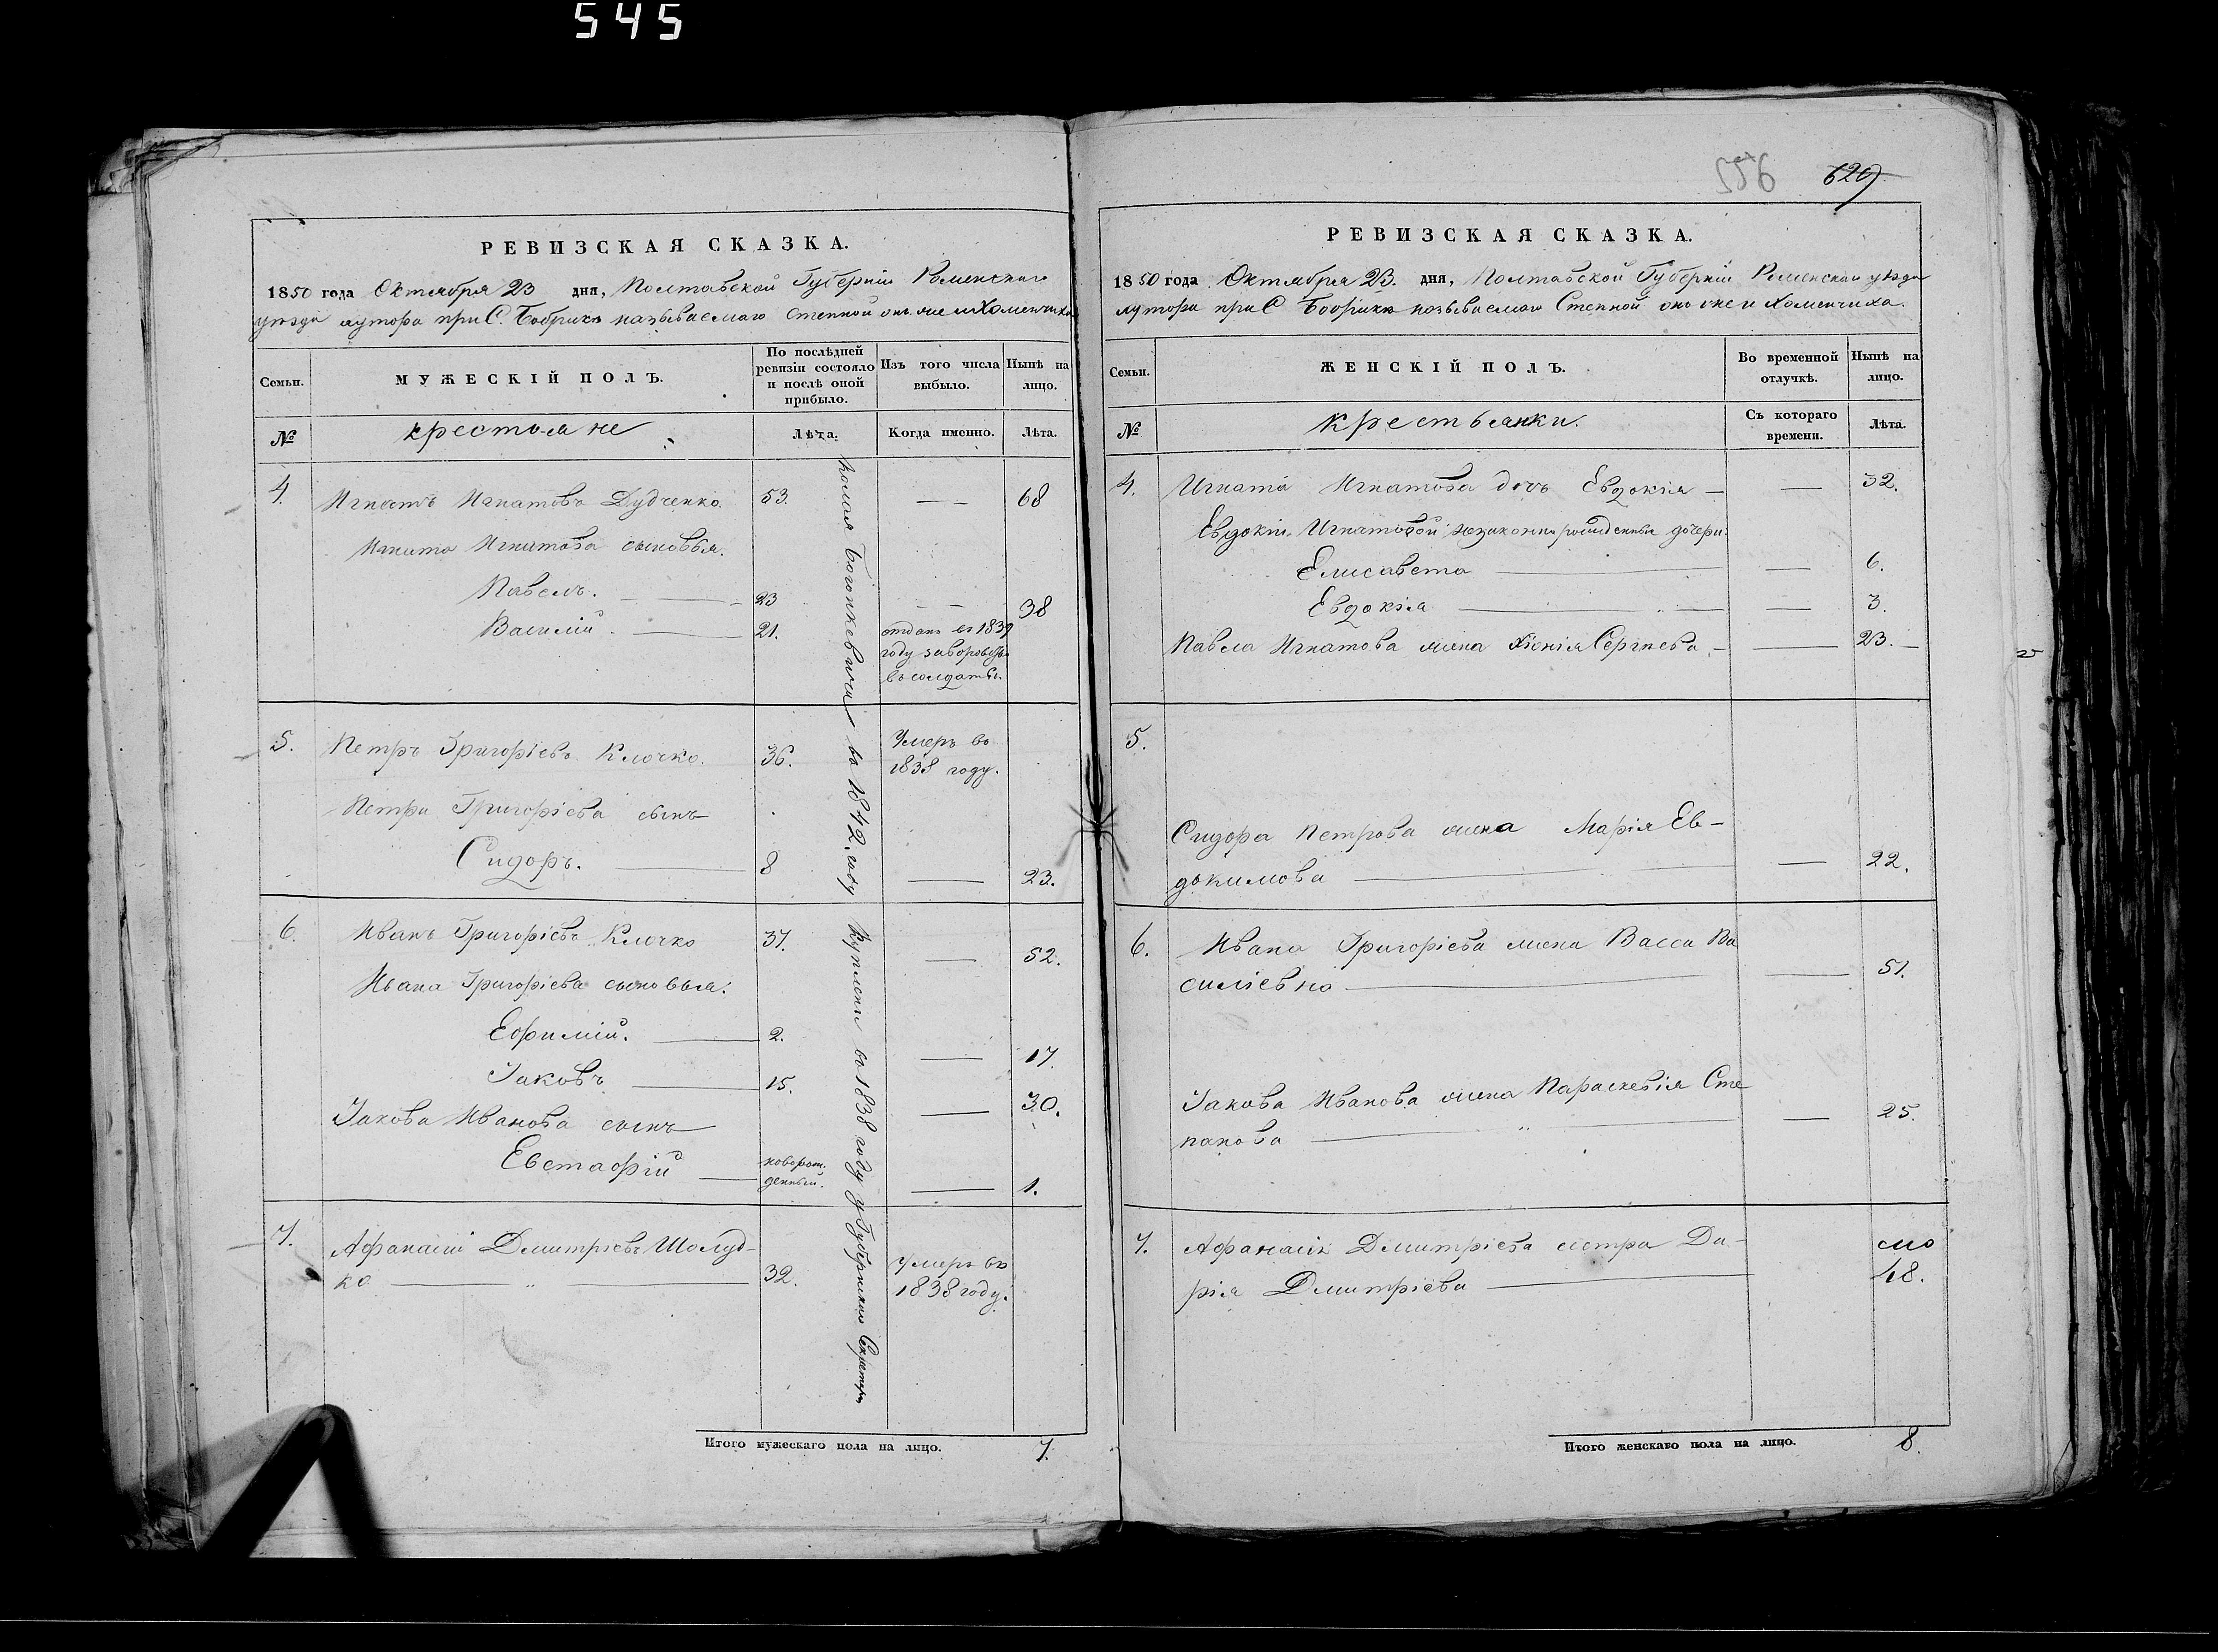 545
556 629
РЕВИЗСКАЯ СКАЗКА.
1850 года Октября 23 дня, Полтавской Губерніи Роменскаго
уѣзда хутора при С. Бобрикѣ называемаго Степной онъ же и Хоменчиха
Семьи.
МУЖЕСКІЙ ПОЛЪ.
По послѣдней
ревизіи состояло
и послѣ оной
прибыло.
Изъ того числа
выбыло.
Нынѣ на
лицо.
№
крестьяне
Лѣта.
Когда именно.
Лѣта.
4. Игнатъ Игнатовъ Дудченко. 53. — 68
Игната Игнатова сыновья.
Павелъ. — 23 — 38
Василій. — 21. отданъ въ 1839
году за воровство
въ солдаты.
5. Петръ Григоріевъ Клочко. 36. Умеръ въ
1838 году.
Петра Григоріева сынъ
Сидоръ. — 8 — 23.
6. Иванъ Григоріевъ Клочко 37. — 52.
Ивана Григоріева сыновья:
Ефимій. — 2. — 17
Іаковъ — 15. — 30.
Іакова Иванова сынъ
Евстафій — новорож-
денный. — 1.
7. Афанасій Дмитріевъ Шолуд-
ко — „ — 32. Умеръ въ
1838 году.
въ 1842 году Куплены въ 1838 году у Губернскаго Секретаря
Итого мужескаго пола на лицо. 7.
РЕВИЗСКАЯ СКАЗКА.
1850 года Октября 23. дня, Полтавской Губерніи Роменскаго уѣзда
хутора при С Бобрикѣ называемаго Степной онъ же и Хоменчиха.
Семьи.
ЖЕНСКІЙ ПОЛЪ.
Во временной
отлучкѣ.
Нынѣ на
лицо.
№
Крестьянки.
Съ котораго
времени.
Лѣта.
4. Игната Игнатова дочь Евдокія — — 32.
Евдокіи Игнатовой незаконнорожденныя дочери.
Елисавета — — 6.
Евдокія — — 3.
Павла Игнатова жена Ксенія Сергѣева. — — 23. —
5.
Сидора Петрова жена Марія Ев-
докимова — — 22.
6. Ивана Григоріева жена Васса Ва
силіевна — — 51.
Іакова Иванова жена Параскевія Сте
панова — „ — — 25.
7. Афанасія Дмитріева сестра Да-
рія Дмитріева — 48.
Итого женскаго пола на лицо. 8.